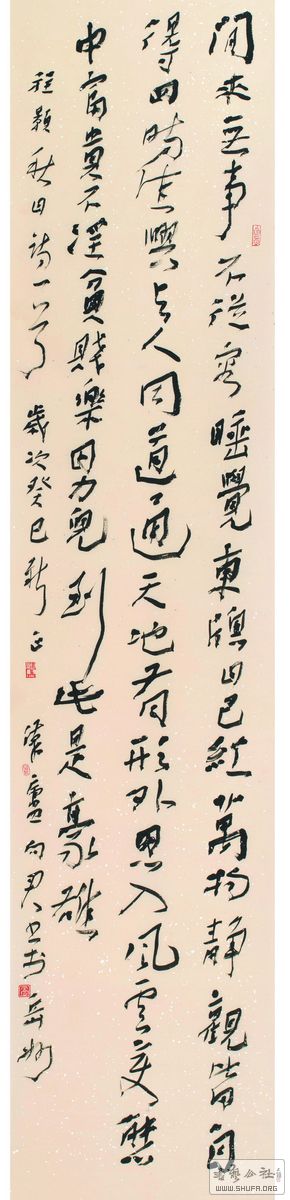 閒來无事不從容睡覺東窗日已紅萬物靜觀皆自
得四時佳興与人同道通天地有形外思入風雲變態
中富貴不淫貧賤樂男兒到此是豪雄
程顥秋日詩一首 歲次癸巳新正
書藝公社
WWW.SHUFA.ORG